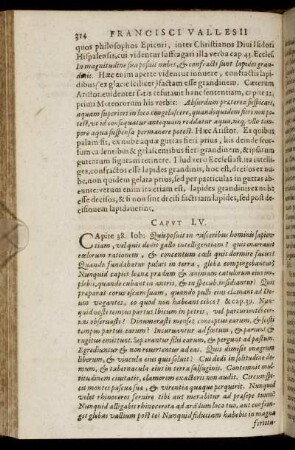 314 FRANCISCI VALLESII
quot philosophos Epicuri, inter Christianos Diui Isidori
Hispalensis, cui videntur suffragari illa verba cap. 43. Eccles.
In magnitudine sua posuit nubes, & confracti sunt lapides gran-
dinis. Hæc enim aperte videntur innuere, confractis lapi-
dibus, ex glacie scilicet factam esse grandinem. Cæterum
Aristot. euidenter satis refutauit hanc sententiam, capite 12.
primi Meteororum his verbis: Absurdum præterea suspicari,
aquam superiori in loco congelascere, quando quidem fieri non po-
test, ut id consequatur antequam reddatur aqua, neq; ullo tem-
pore aqua suspensa permanere potest. Hæc Aristot. Ex quibus
palam sit, ex nube aqua guttas fieri prius, his deinde con-
tentione
guttarum figuras retinere. Illud vero Ecclesiast. ita intelligi,
non quidem gelata prius, sed per particulas in guttas
densitate, ut certum etiam est, lapides grandinis esse con-
fractos, & si non sint denuo fracti iam lapides, sed post de-
cisionem lapidauerint.
CAPVT LV.
CApite 38. Iob: Quis posuit in visceribus hominis sapien-
tiam, vel quis dedit gallo intelligentiam? quis enarrauit
cœlorum rationem, & concentum cœli quis dormire faciet?
Quando fundabatur puluis in terra, & glebæ compingebantur?
Nunquid capies leænæ prædam, & animam catulorum eius im-
plebis, quando cubant in antris, & in specubus insidiantur? Quis
præparat coruo escam suam, quando pulli eius clamant ad De-
um vagantes, eo quod non habeant cibos? & cap. 39. Nun-
quid nosti tempus partus ibicum in petris, vel parturientes cer-
uas obseruasti? Dinumerasti menses conceptus earum, & scisti
tempus partus earum? Incuruantur ad fœtum, & pariunt, &
rugitus emittunt. Separantur filii earum, & pergunt ad pastum.
Egrediuntur & non reuertuntur ad eas. Quis dimisit onagrum
liberum, & vincula eius quis soluit? Cui dedi in solitudine do-
mum, & tabernacula eius in terra salsuginis. Contemnit mul-
titudinem ciuitatis, clamorem exactoris non audit. Circumspi-
cit montes pascuæ suæ, & virentia quæque perquirit. Nunquid
volet rhinoceros seruire tibi aut morabitur ad præsepe tuum?
Nunquid alligabis rhinocerota ad arandum loro tuo, aut confrin-
get glebas vallium post te? Nunquid fiduciam habebis in magna
fortitu-